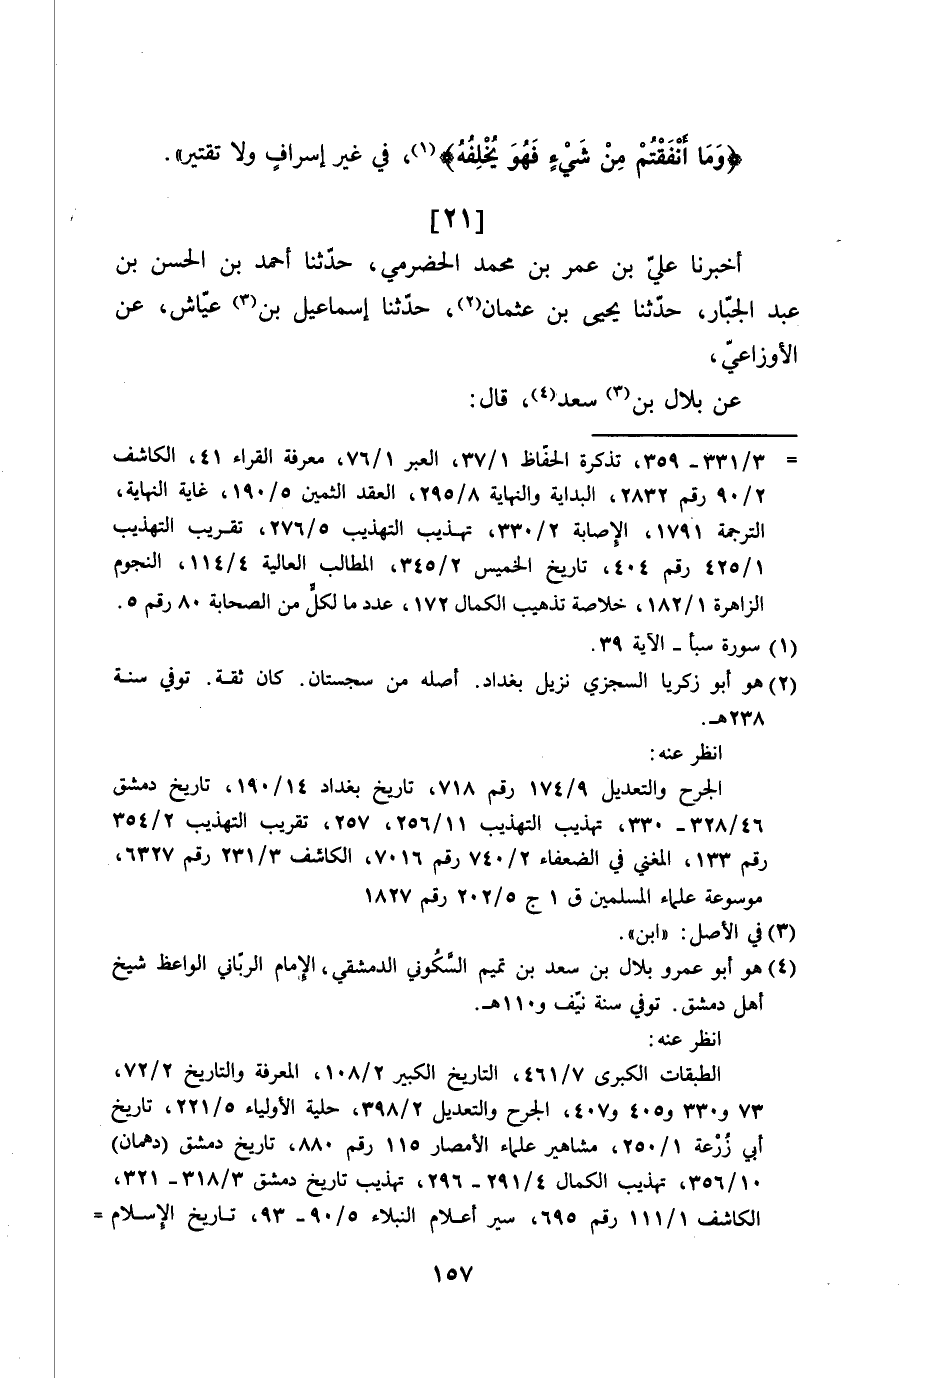 ﴿وَمَا أَنْفَقْتُمْ مِنْ شَيْءٍ فَهُوَ يُخْلِفُهُ﴾(١)، في غير إسرافٍ ولا تقتير».
[٢١]
أخبرنا عليّ بن عمر بن محمد الحضرمي، حدّثنا أحمد بن الحسن بن
عبد الجبّار، حدّثنا يحيى بن عثمان(٢)، حدّثنا إسماعيل بن(٣) عيّاش، عن
الأوزاعيّ،
عن بلال بن(٣) سعد(٤)، قال:
= ٣٣١/٣ـ ٣٥٩، تذكرة الحفّاظ ٣٧/١، العبر ٧٦/١، معرفة القراء ٤١، الكاشف
٩٠/٢ رقم ٢٨٣٢، البداية والنهاية ٢٩٥/٨، العقد الثمين ١٩٠/٥، غاية النهاية،
الترجمة ١٧٩١، الإصابة ٣٣٠/٢، تهذيب التهذيب ٢٧٦/٥، تقريب التهذيب
٤٢٥/١ رقم ٤٠٤، تاريخ الخميس ٣٤٥/٢، المطالب العالية ١١٤/٤، النجوم
الزاهرة ١٨٢/١، خلاصة تذهيب الكمال ١٧٢، عدد ما لكلٍّ من الصحابة ٨٠ رقم ٥.
(١) سورة سبأ ـ الآية ٣٩.
(٢) هو أبو زكريا السجزي نزيل بغداد. أصله من سجستان. كان ثقة. توفي سنة
٢٣٨هـ.
انظر عنه:
الجرح والتعديل ١٧٤/٩ رقم ٧١٨، تاريخ بغداد ١٩٠/١٤، تاريخ دمشق
٣٢٨/٤٦ـ ٣٣٠، تهذيب التهذيب ٢٥٦/١١، ٢٥٧، تقريب التهذيب ٣٥٤/٢
رقم ١٣٣، المغني في الضعفاء ٧٤٠/٢ رقم ٧٠١٦، الكاشف ٢٣١/٣ رقم ٦٣٢٧،
موسوعة علماء المسلمين ق ١ ج ٢٠٢/٥ رقم ١٨٢٧
(٣) في الأصل: «ابن».
(٤) هو أبو عمرو بلال بن سعد بن تميم السَّكُوني الدمشقي، الإمام الربّاني الواعظ شيخ
أهل دمشق. توفي سنة نيّف و١١٠هـ.
انظر عنه:
الطبقات الكبرى ٤٦١/٧، التاريخ الكبير ١٠٨/٢، المعرفة والتاريخ ٧٢/٢،
٧٣ و٣٣٠ و٤٠٥ و٤٠٧، الجرح والتعديل ٣٩٨/٢، حلية الأولياء ٢٢١/٥، تاريخ
أبي زُرْعة ٢٥٠/١، مشاهير علماء الأمصار ١١٥ رقم ٨٨٠، تاريخ دمشق (دهمان)
٣٥٦/١٠، تهذيب الكمال ٢٩١/٤ـ ٢٩٦، تهذيب تاريخ دمشق ٣١٨/٣ـ ٣٢١،
الكاشف ١١١/١ رقم ٦٩٥، سير أعلام النبلاء ٩٠/٥ـ ٩٣، تاريخ الإسلام =
١٥٧